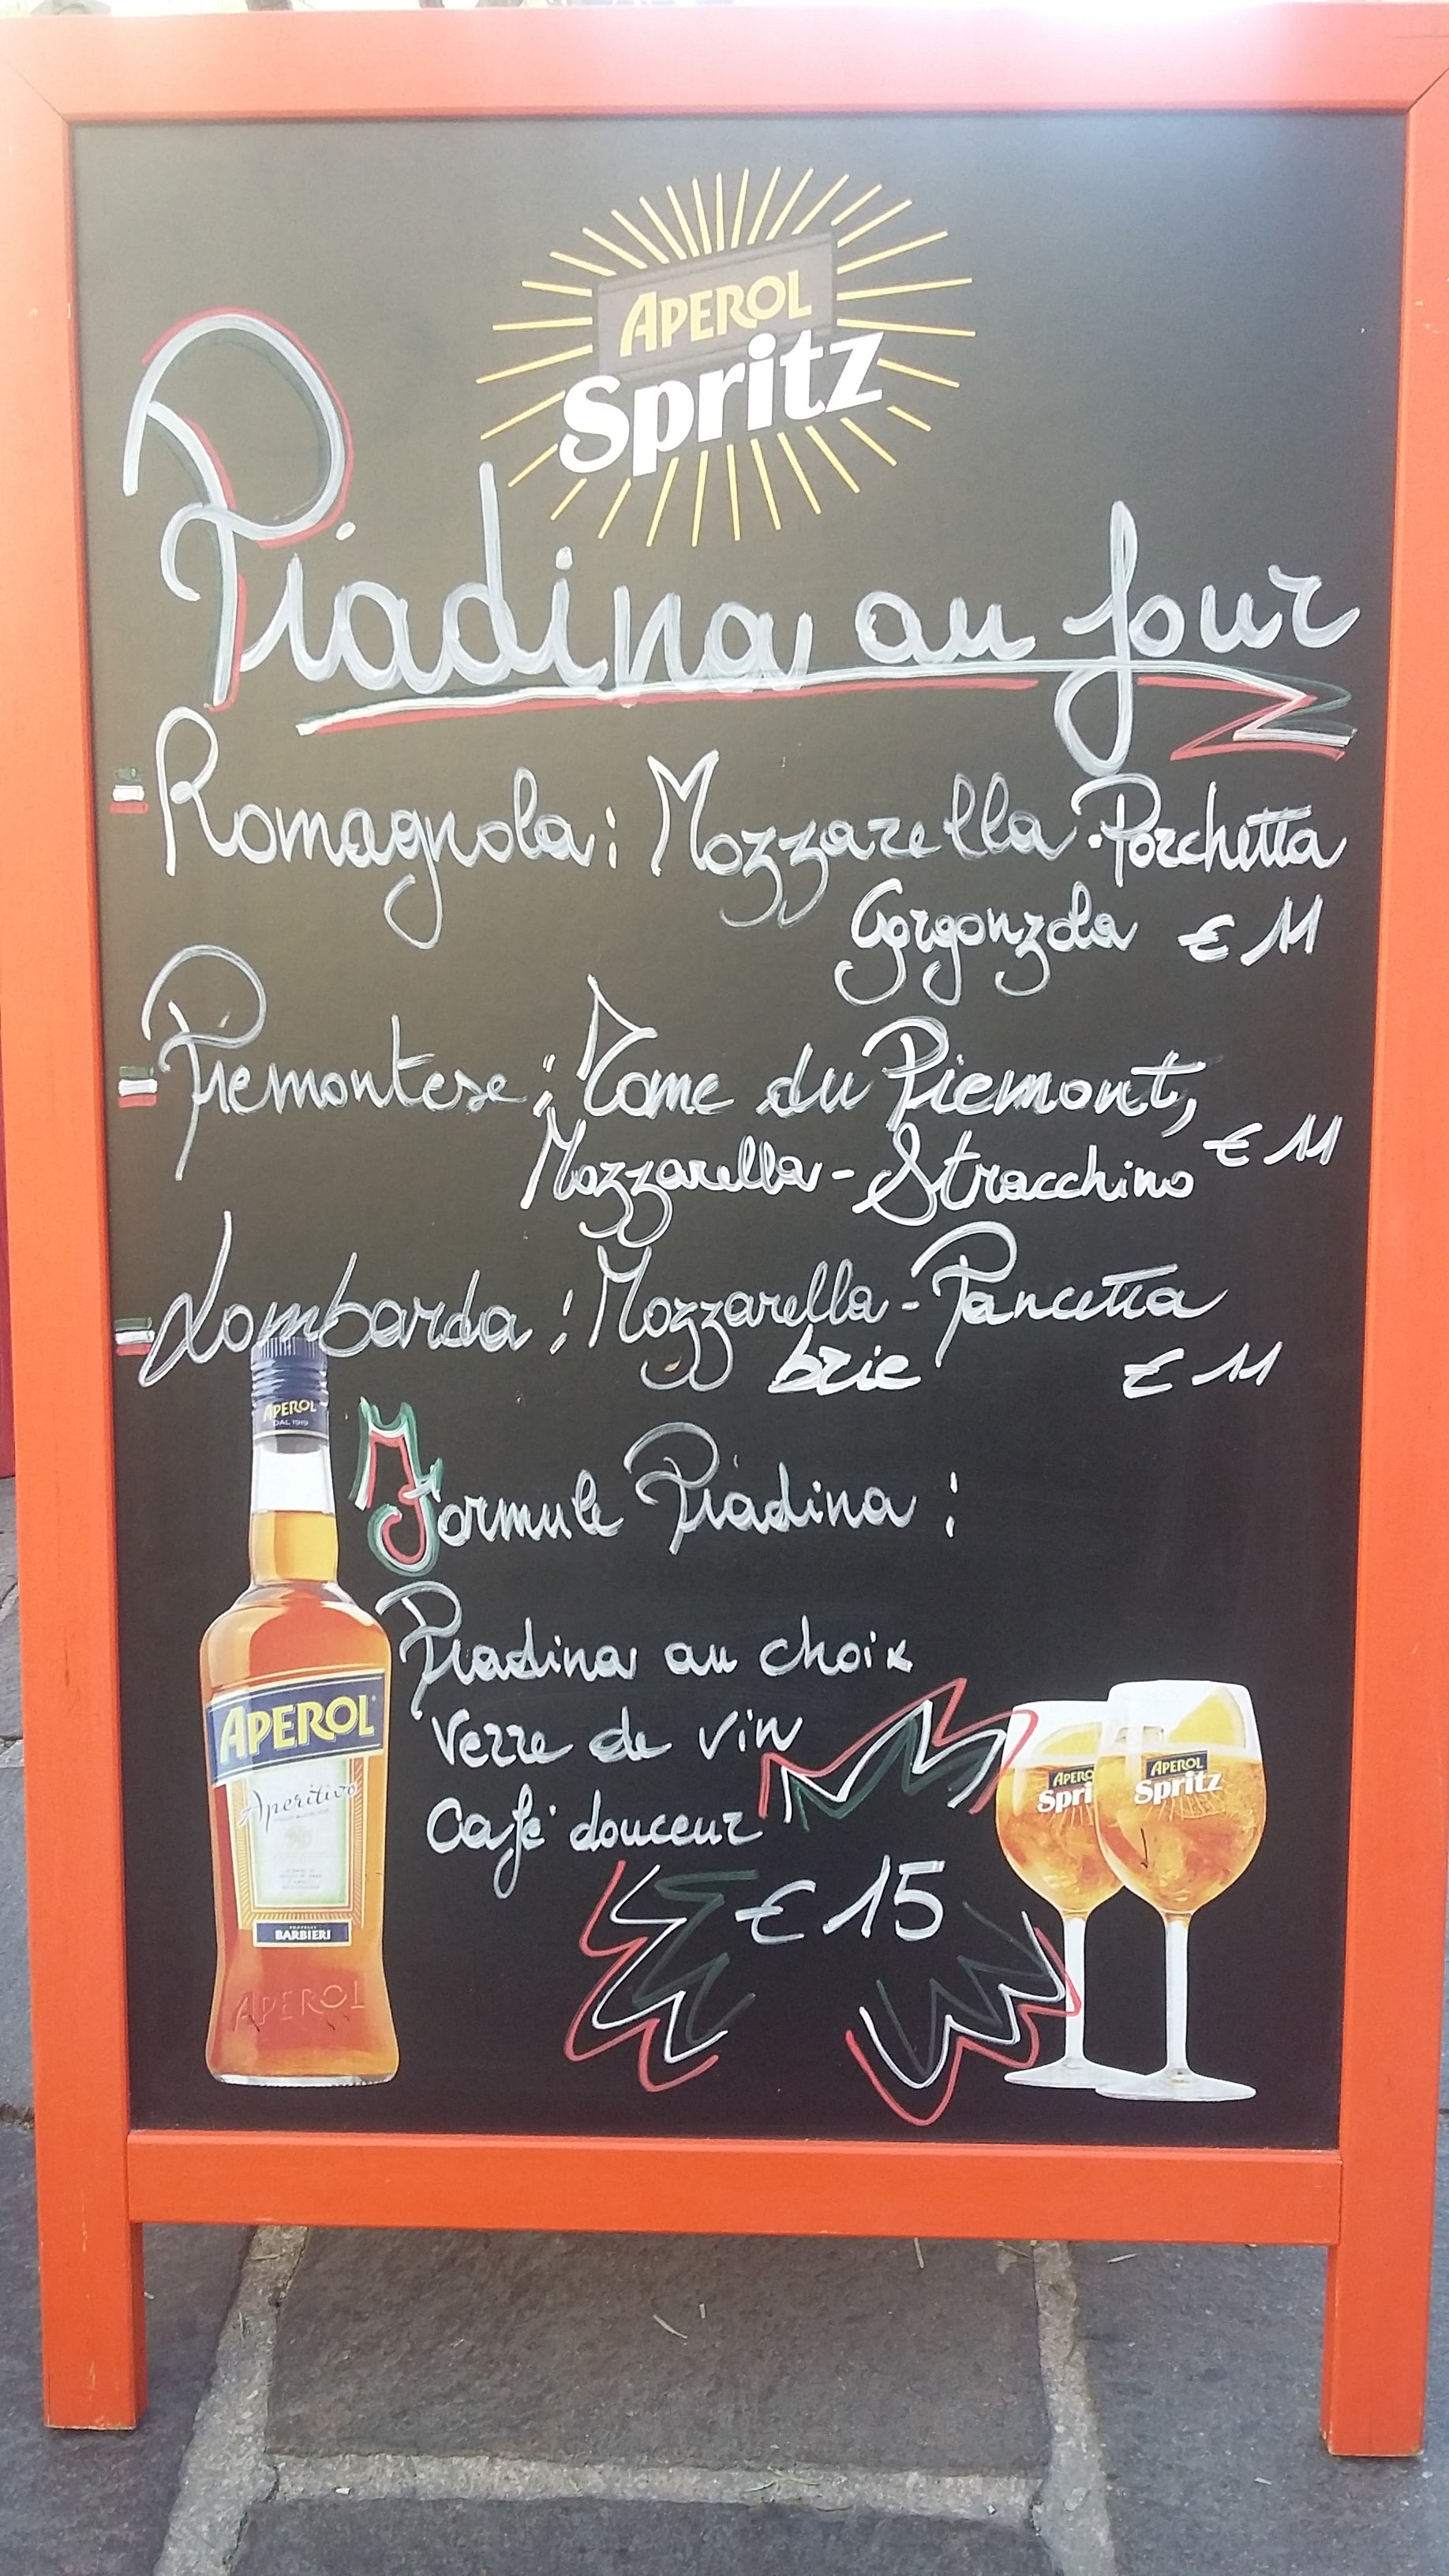 APEROL
Spritz
Piadina au four
Romagnola : Mozzarella - Porchetta
Gorgonzola € 11
Piemontese : Tome du Piemont,
Mozzarella - Stracchino € 11
Lombarda : Mozzarella - Pancetta
brie € 11
APEROL
DAL 1919
Formule Piadina :
Piadina au choix
Verre de vin
Café douceur
€ 15
APEROL
Aperitivo
BARBIERI
APEROL
APERO
Spri
APEROL
Spritz